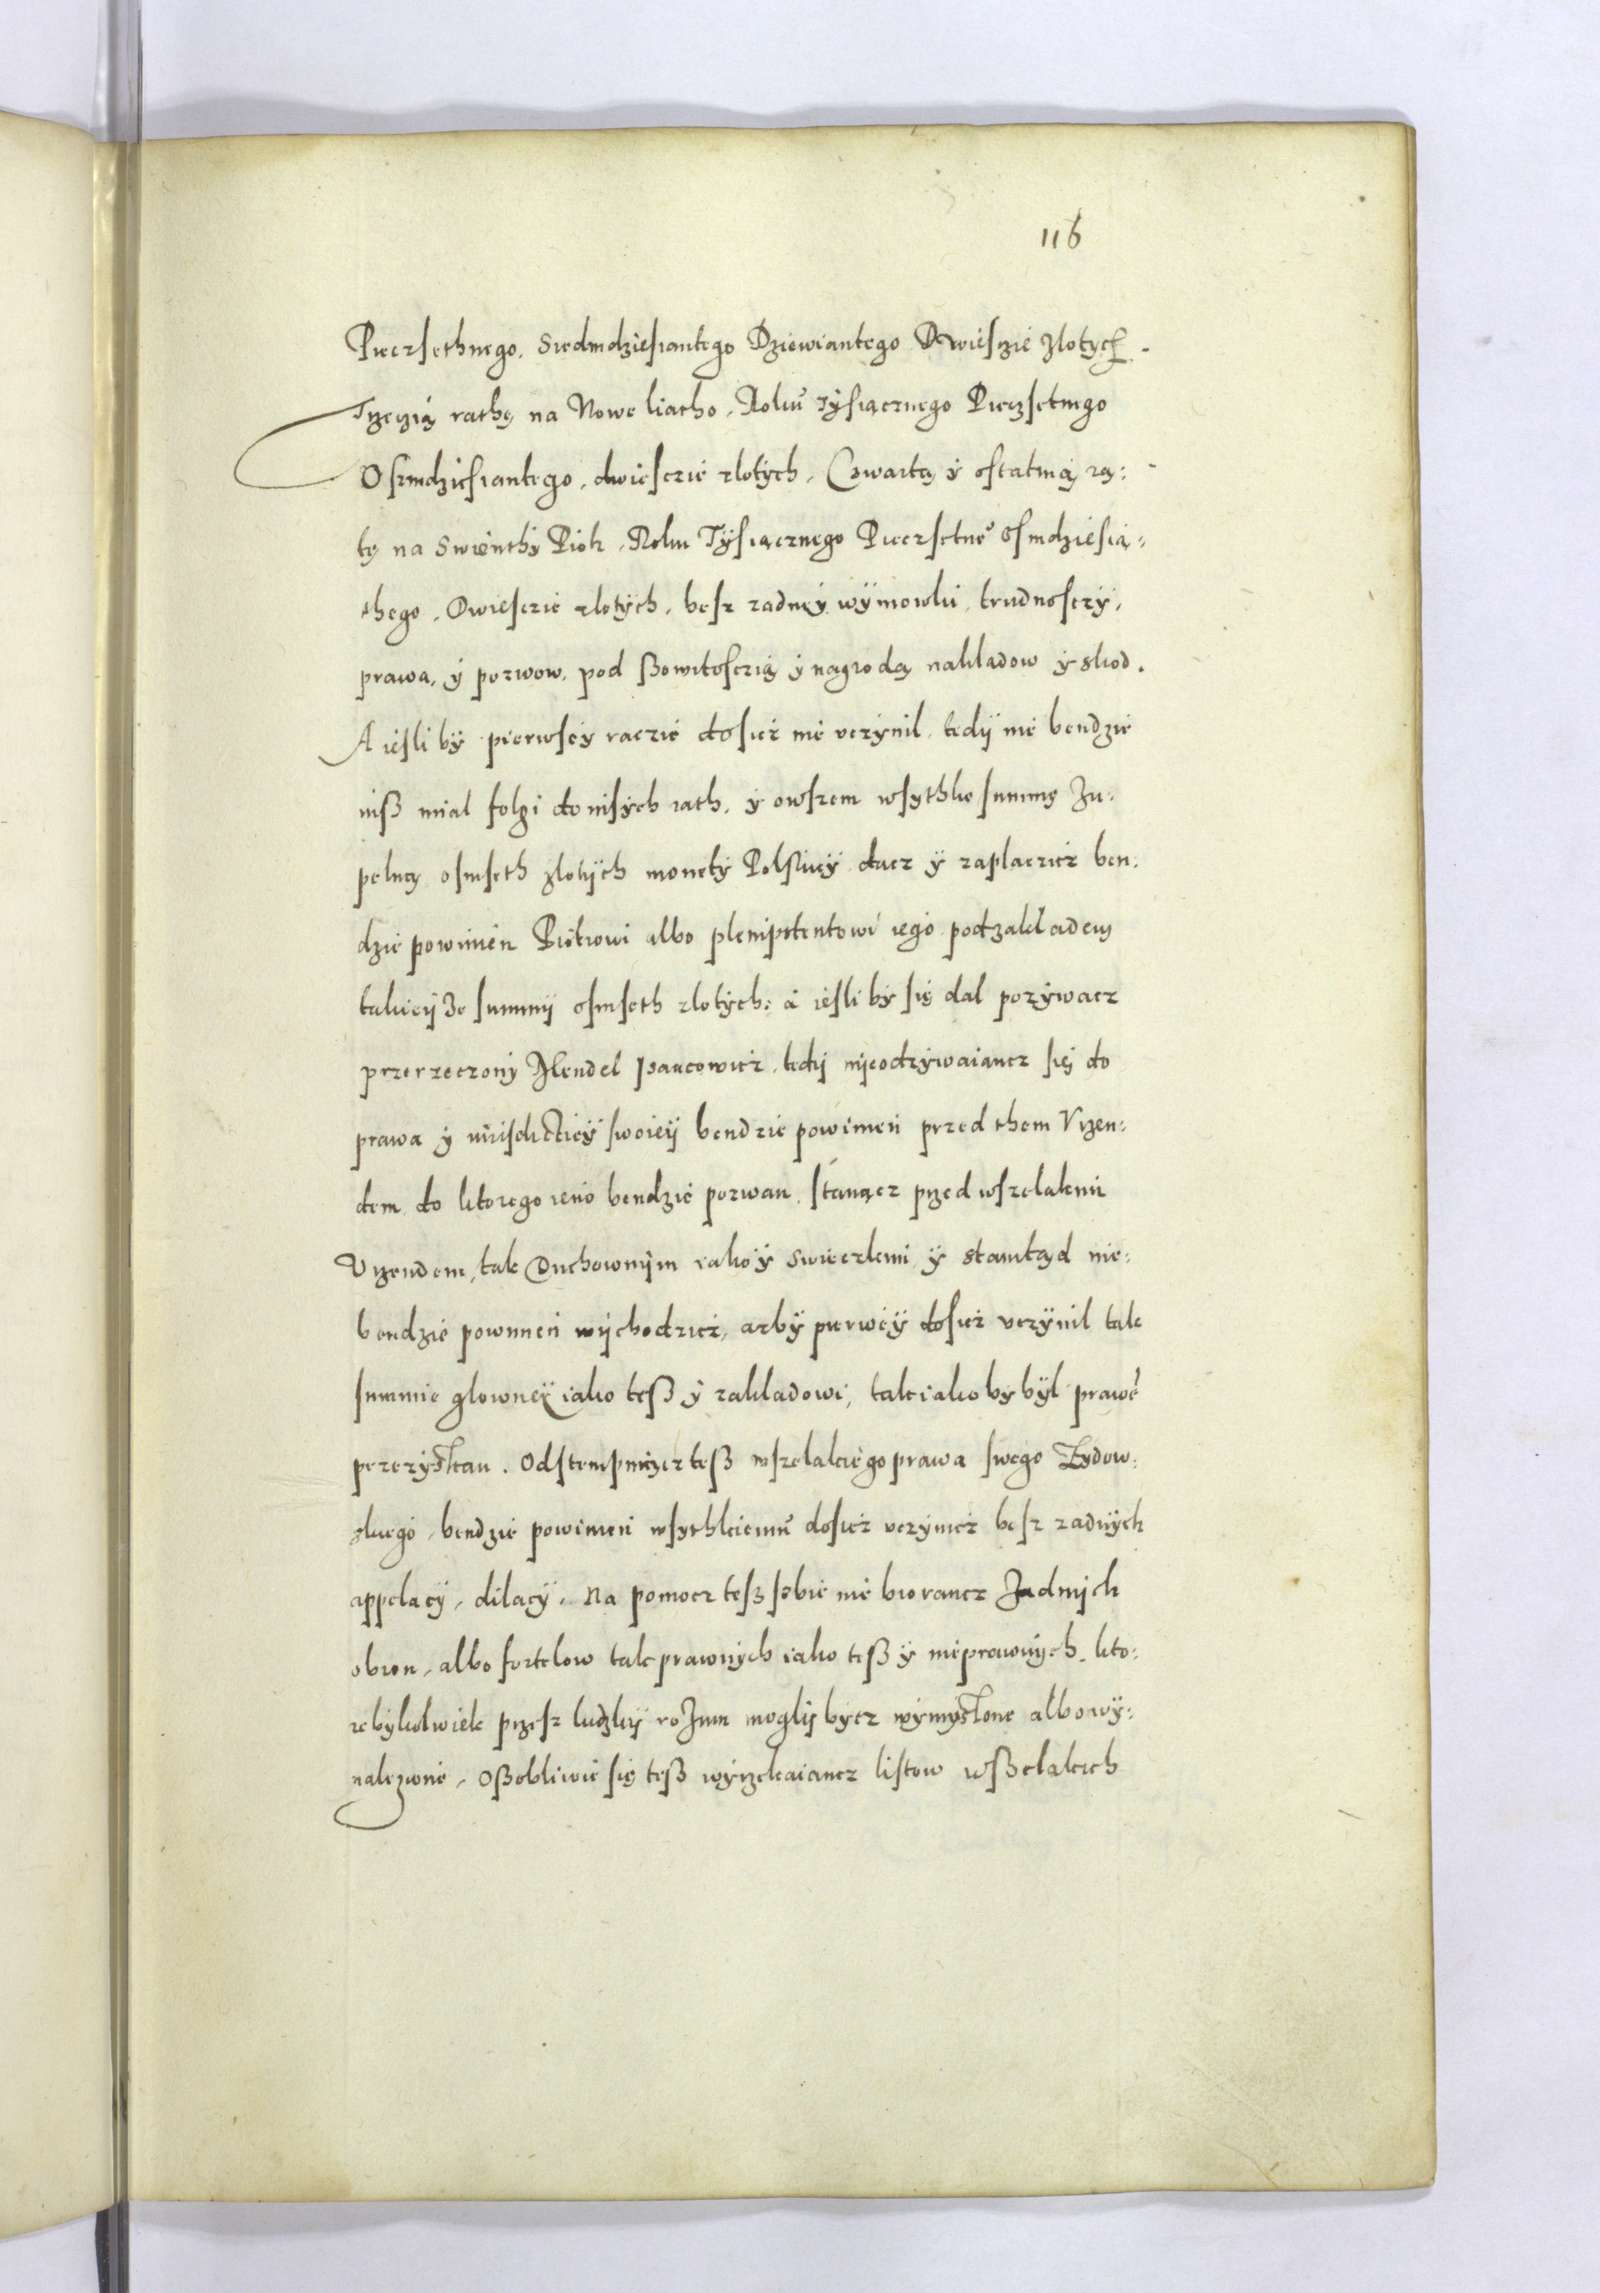 116
Pieczsethnego, Siedmdziesiantego Dziewiantego Dwiesczie Zlotych.
Trzeczią rathę na Nowe liatho, Roku Tysiącznego Pieczsetnego
Oszmdziesiantego, dwiesczie zlotych, Czwartą y ostatnią ra:
tę na Swienthy Piotr, Roku Tysiącznego Pieczsetne° osmdziesią:
thego, Dwiesczie zlotych, besz zadney wymowki, trudnosczy,
prawa, y pozwow, pod ßowitosczią y nagrodą nakladow y skod.
A iesli by pierwsey raczie dosicz nie uczynil, tedy nie bendzie
niß mial folgi do inszych rath, y owszem wsythke summę Zu:
pelną osmseth zlotych monety Polskiey dacz y zaplaczicz ben:
dzie powinien Piotrowi albo plenipotentowi iego pod zakladem
takieyze summy osmseth zlotych: a iesli by się dal pozywacz
przerzeczony Mendel Isaacowicz, tedy nieodzywaiancz się do
prawa y iurisdictiey swoiey bendzie powinien przed them Urzen:
dem do ktorego ieno bendzie pozwan, stanącz przed wszelakim
Urzendem, tak Duchownym iako y Swieczkim y stamtąd nie:
bendzie powinien wychodzicz, azby pierwey dosicz uczynil tak
summie glowney iako teß y zakladowi, tak iako by byl prawe°
przezyskan. Odstempuiącz teß wszelakiego prawa swego Zydow:
skiego, bendzie powinien wsythkiemu dosicz uczynicz besz zadnych
appelacy, dilacy, Na pomocz teß sobie nie biorancz Zadnych
obron, albo fortelow tak prawnych iako teß y nieprawnych, kto:
rebykolwiek przesz ludzky roZum mogly bycz wymyslone albo wy:
nalezione, Oßobliwie się teß wyrzekaiancz listow wßelakich